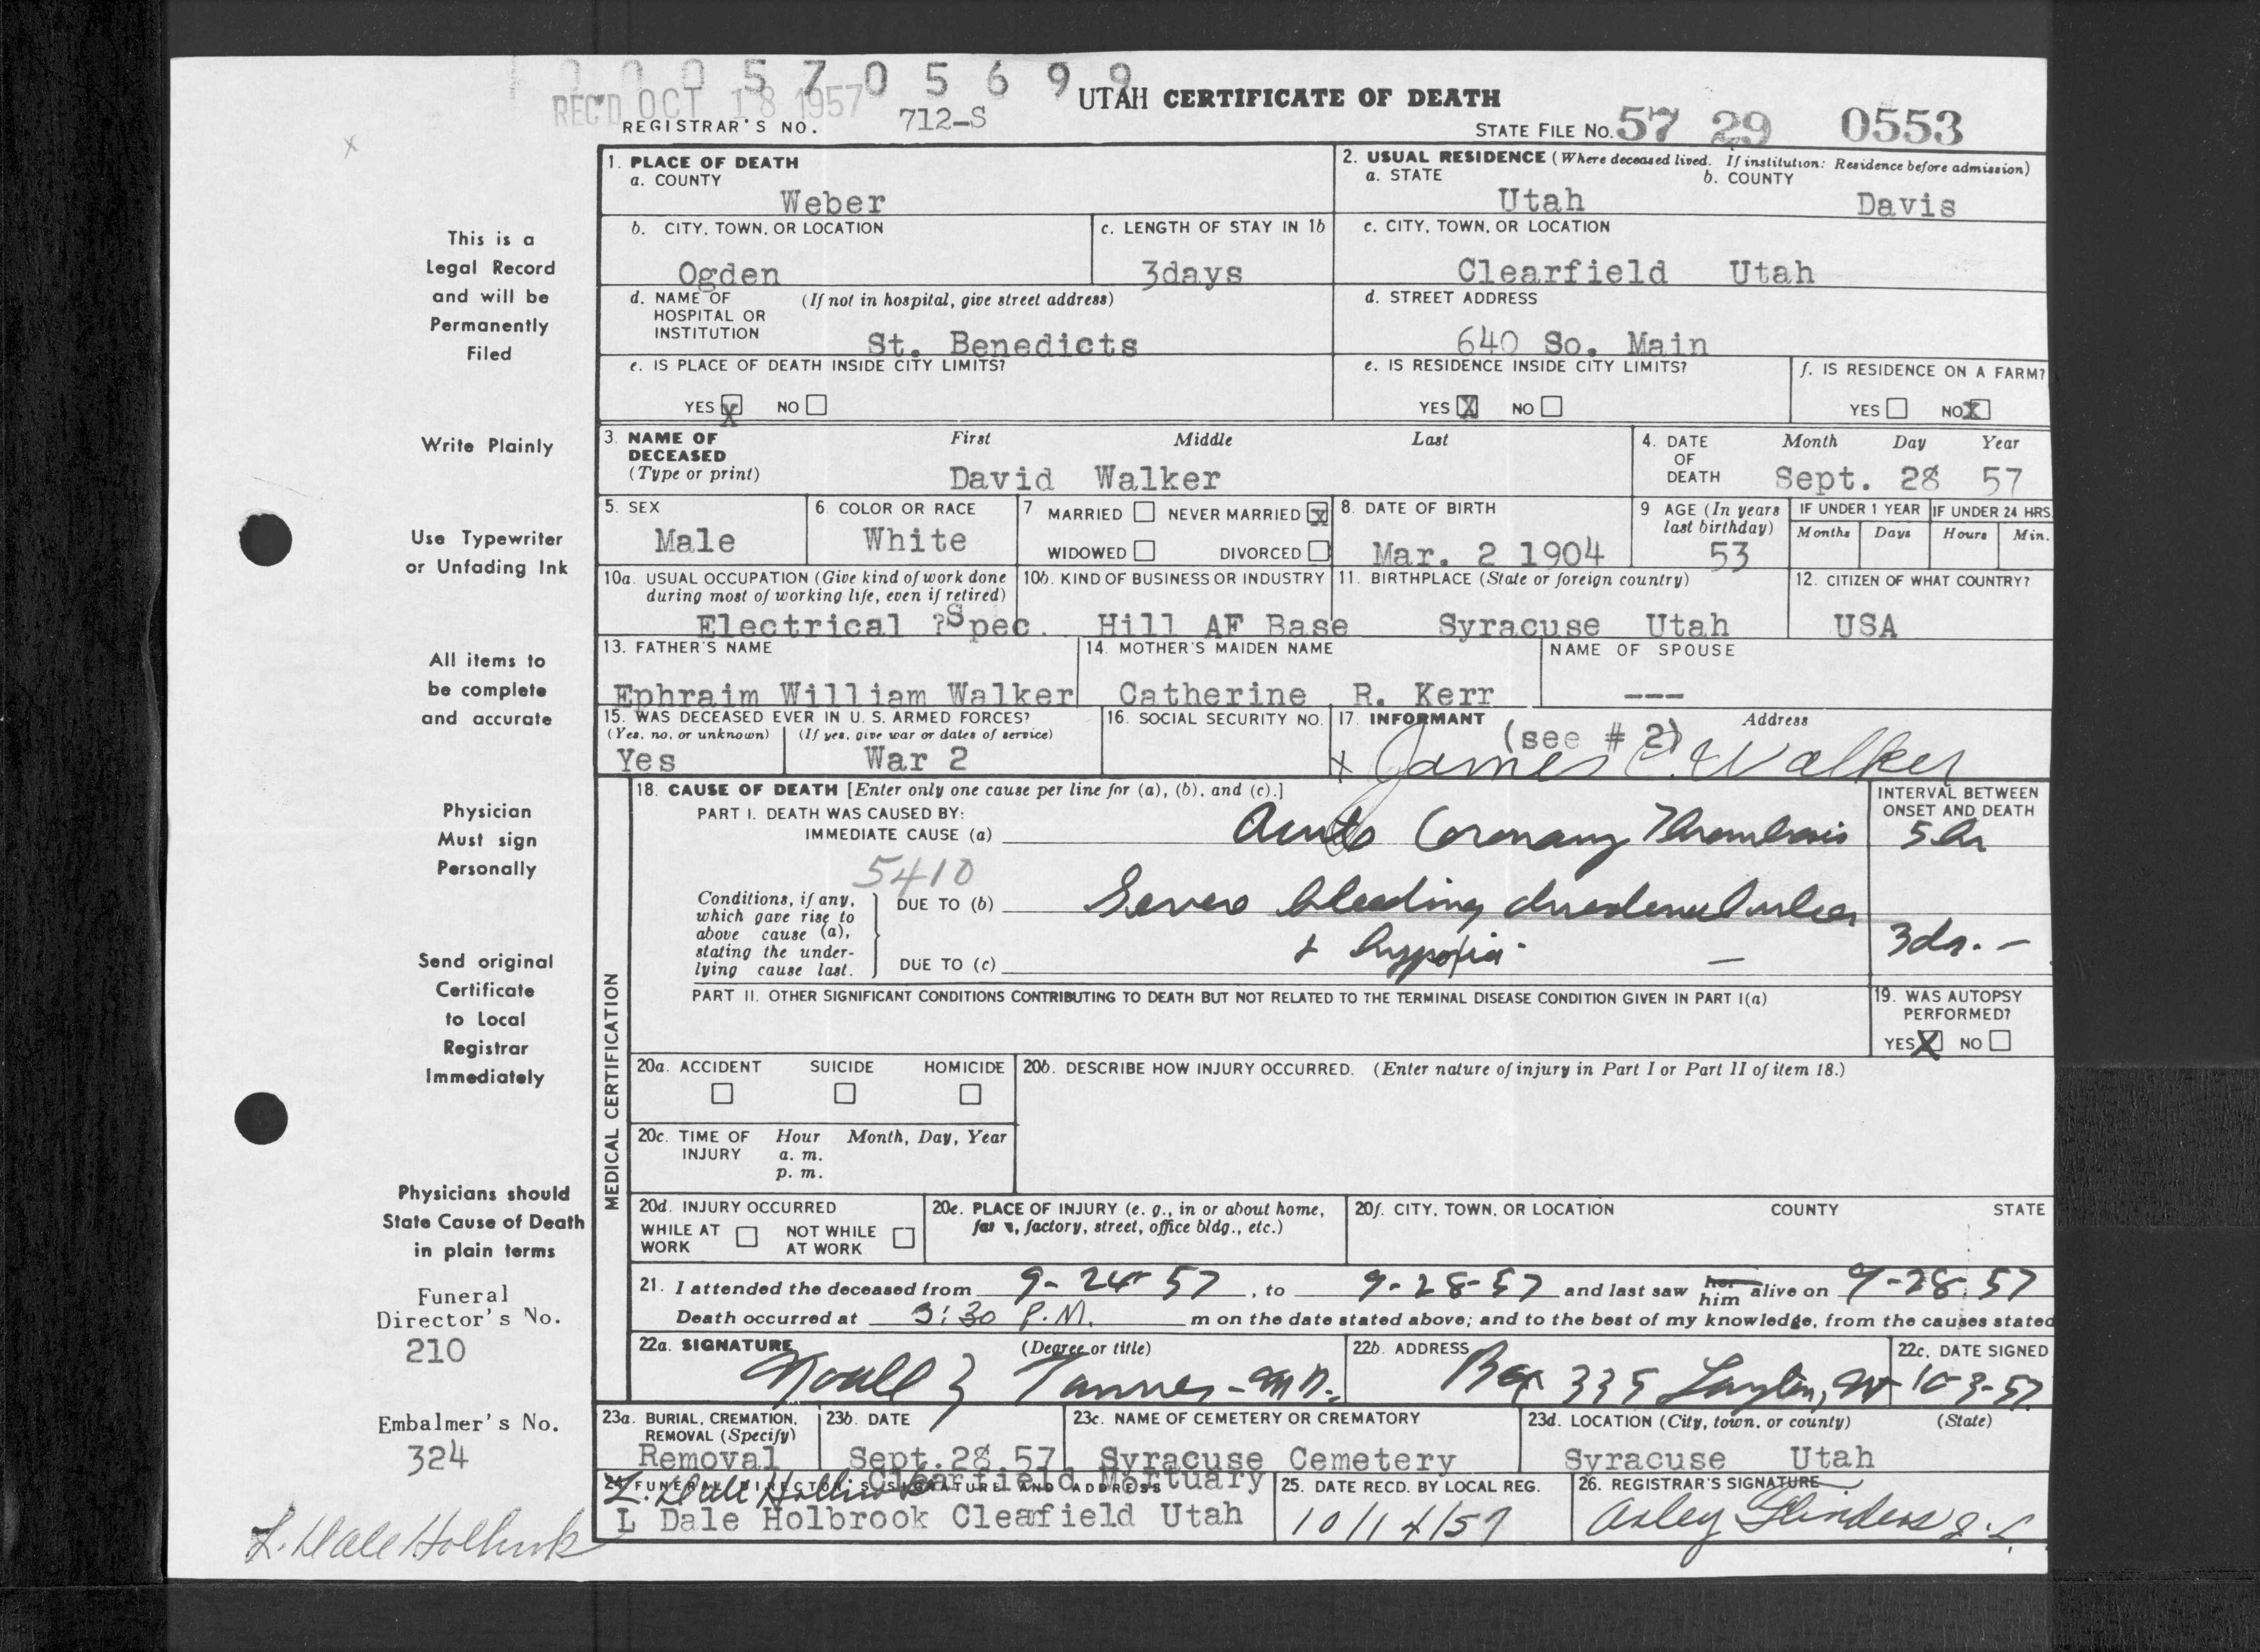 0 0 0 5 7 0 5 6 9 9
REC'D OCT 18 1957
UTAH CERTIFICATE OF DEATH
REGISTRAR'S NO. 712-S
STATE FILE NO. 57 29 0553
This is a
Legal Record
and will be
Permanently
Filed
Write Plainly
Use Typewriter
or Unfading Ink
All items to
be complete
and accurate
Physician
Must sign
Personally
Send original
Certificate
to Local
Registrar
Immediately
Physicians should
State Cause of Death
in plain terms
Funeral
Director's No.
210
Embalmer's No.
324
L. Dale Holbrook
1. PLACE OF DEATH
a. COUNTY
Weber
2. USUAL RESIDENCE (Where deceased lived. If institution: Residence before admission)
a. STATE b. COUNTY
Utah Davis
b. CITY, TOWN, OR LOCATION
Ogden
c. LENGTH OF STAY IN 1b
3days
c. CITY, TOWN, OR LOCATION
Clearfield Utah
d. NAME OF (If not in hospital, give street address)
HOSPITAL OR
INSTITUTION
St. Benedicts
d. STREET ADDRESS
640 So. Main
e. IS PLACE OF DEATH INSIDE CITY LIMITS?
YES X NO
e. IS RESIDENCE INSIDE CITY LIMITS?
YES X NO
f. IS RESIDENCE ON A FARM?
YES NO X
3. NAME OF First Middle Last
DECEASED
(Type or print)
David Walker
4. DATE Month Day Year
OF
DEATH Sept. 28 57
5. SEX
Male
6. COLOR OR RACE
White
7 MARRIED NEVER MARRIED X
WIDOWED DIVORCED
8. DATE OF BIRTH
Mar. 2 1904
9 AGE (In years
last birthday)
53
IF UNDER 1 YEAR IF UNDER 24 HRS.
Months Days Hours Min.
10a. USUAL OCCUPATION (Give kind of work done
during most of working life, even if retired)
Electrical ?Spec.
10b. KIND OF BUSINESS OR INDUSTRY
Hill AF Base
11. BIRTHPLACE (State or foreign country)
Syracuse Utah
12. CITIZEN OF WHAT COUNTRY?
USA
13. FATHER'S NAME
Ephraim William Walker
14. MOTHER'S MAIDEN NAME
Catherine R. Kerr
NAME OF SPOUSE
---
15. WAS DECEASED EVER IN U. S. ARMED FORCES?
(Yes, no, or unknown) (If yes, give war or dates of service)
Yes War 2
16. SOCIAL SECURITY NO.
17. INFORMANT Address
(see # 2)
x James C. Walker
MEDICAL CERTIFICATION
18. CAUSE OF DEATH [Enter only one cause per line for (a), (b), and (c).]
PART I. DEATH WAS CAUSED BY:
IMMEDIATE CAUSE (a) Acute Coronary Thrombosis
INTERVAL BETWEEN
ONSET AND DEATH
5 hr
5410
Conditions, if any,
which gave rise to
above cause (a),
stating the under-
lying cause last.
DUE TO (b) Severe bleeding duodenal ulcer
&
DUE TO (c)
3 da. -
PART II. OTHER SIGNIFICANT CONDITIONS CONTRIBUTING TO DEATH BUT NOT RELATED TO THE TERMINAL DISEASE CONDITION GIVEN IN PART I(a)
19. WAS AUTOPSY
PERFORMED?
YES X NO
20a. ACCIDENT SUICIDE HOMICIDE
20b. DESCRIBE HOW INJURY OCCURRED. (Enter nature of injury in Part I or Part II of item 18.)
20c. TIME OF Hour Month, Day, Year
INJURY a. m.
p. m.
20d. INJURY OCCURRED
WHILE AT NOT WHILE
WORK AT WORK
20e. PLACE OF INJURY (e. g., in or about home,
farm, factory, street, office bldg., etc.)
20f. CITY, TOWN, OR LOCATION COUNTY STATE
21. I attended the deceased from 9-24-57, to 9-28-57 and last saw her him alive on 9-28-57
Death occurred at 3:30 P.M. m on the date stated above; and to the best of my knowledge, from the causes stated
22a. SIGNATURE (Degree or title)
Noall Z Tanner - M D.
22b. ADDRESS
Box 335 Layton, Ut
22c. DATE SIGNED
10-3-57
23a. BURIAL, CREMATION,
REMOVAL (Specify)
Removal
23b. DATE
Sept.28 57
23c. NAME OF CEMETERY OR CREMATORY
Syracuse Cemetery
23d. LOCATION (City, town, or county) (State)
Syracuse Utah
24. FUNERAL DIRECTOR'S SIGNATURE AND ADDRESS
L. Dale Holbrook
Clearfield Mortuary
L Dale Holbrook Clearfield Utah
25. DATE RECD. BY LOCAL REG.
10/14/57
26. REGISTRAR'S SIGNATURE